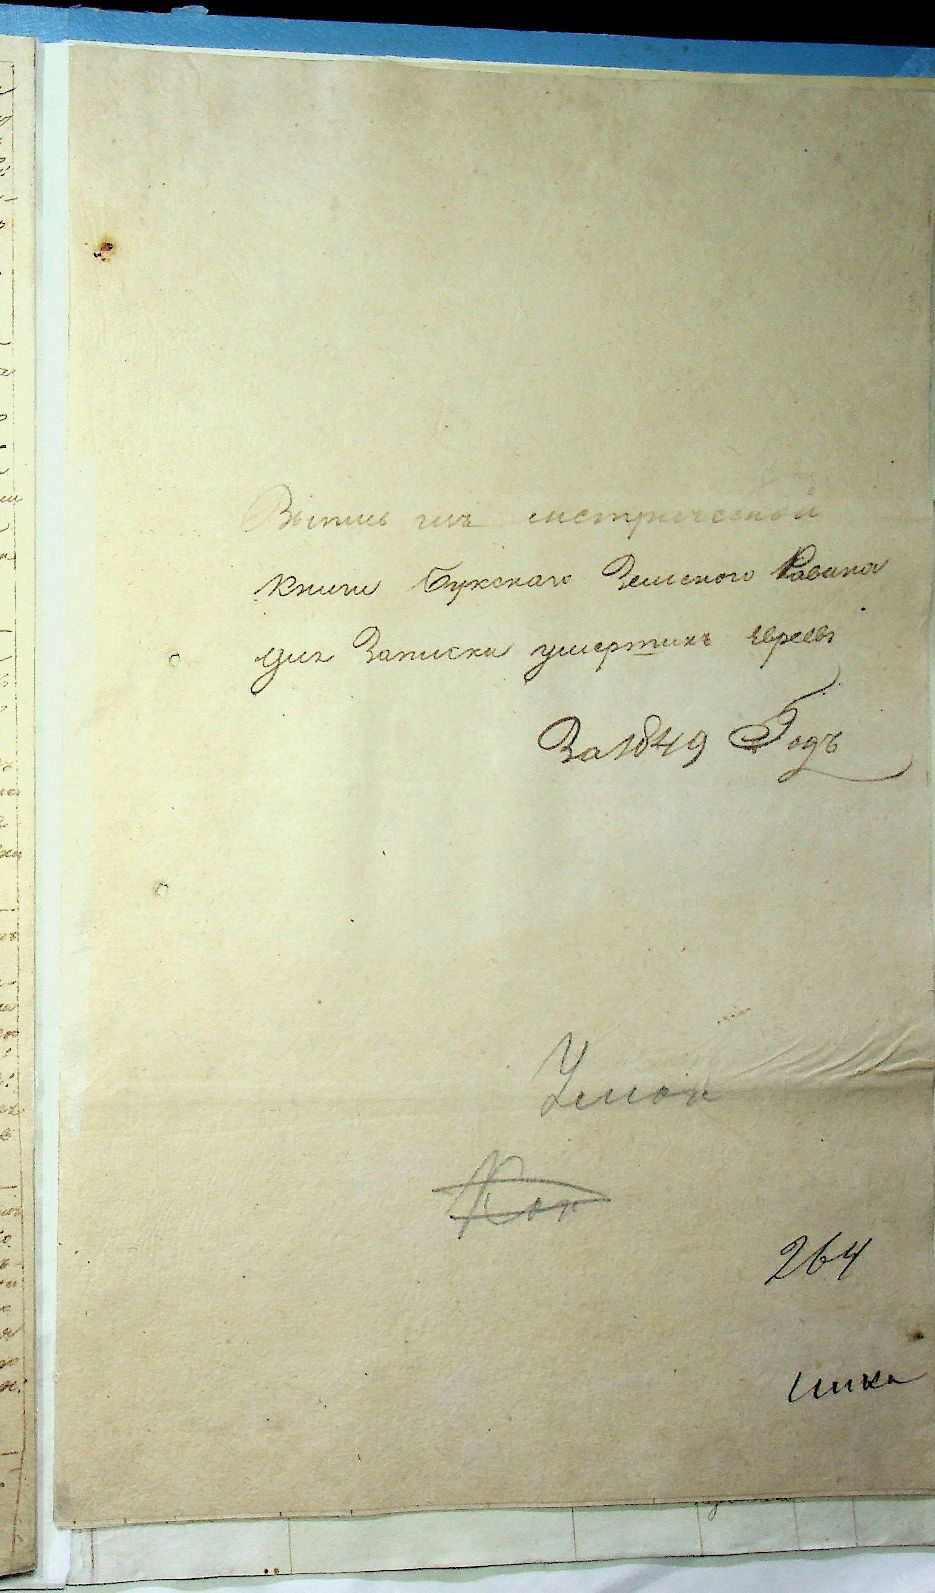 Выпись изъ метрической
Книги Букскаго Земского Равина
для Записки умертихъ евреевъ
За 1849 Годъ
Умон
264